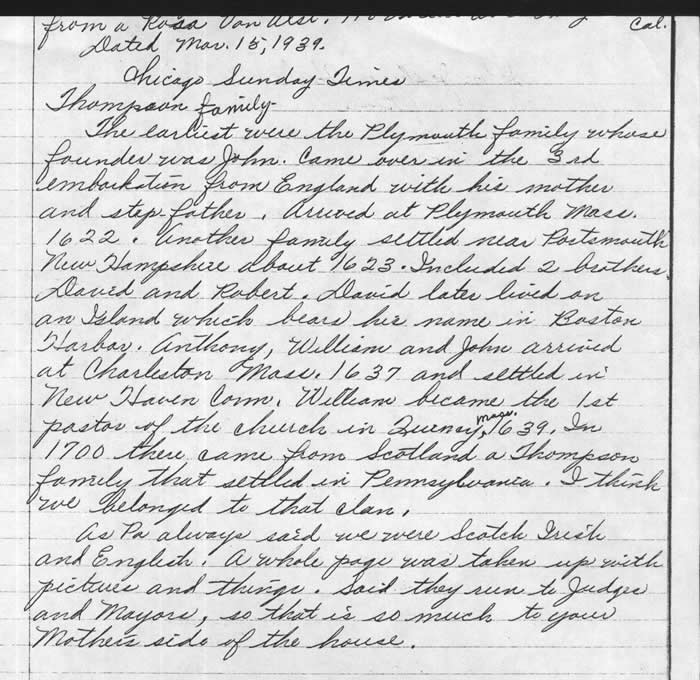 from a Rosa Van Alst.
Cal.
Dated Mar. 15, 1939.
Chicago Sunday Times
Thompson family-
The earliest were the Plymouth family whose
founder was John. Came over in the 3rd
embarkation from England with his mother
and step-father. Arrived at Plymouth Mass.
1622. Another family settled near Portsmouth
New Hampshire about 1623. Included 2 brothers
David and Robert. David later lived on
an Island which bears his name in Boston
Harbor. Anthony, William and John arrived
at Charleston Mass. 1637 and settled in
New Haven Conn. William became the 1st
pastor of the church in Quensy, Mass. 1639. In
1700 there came from Scotland a Thompson
family that settled in Pennsylvania. I think
we belonged to that clan.
As Pa always said we were Scotch Irish
and English. A whole page was taken up with
pictures and things. Said they run to Judges
and Mayors, so that is so much to your
Mothers side of the house.